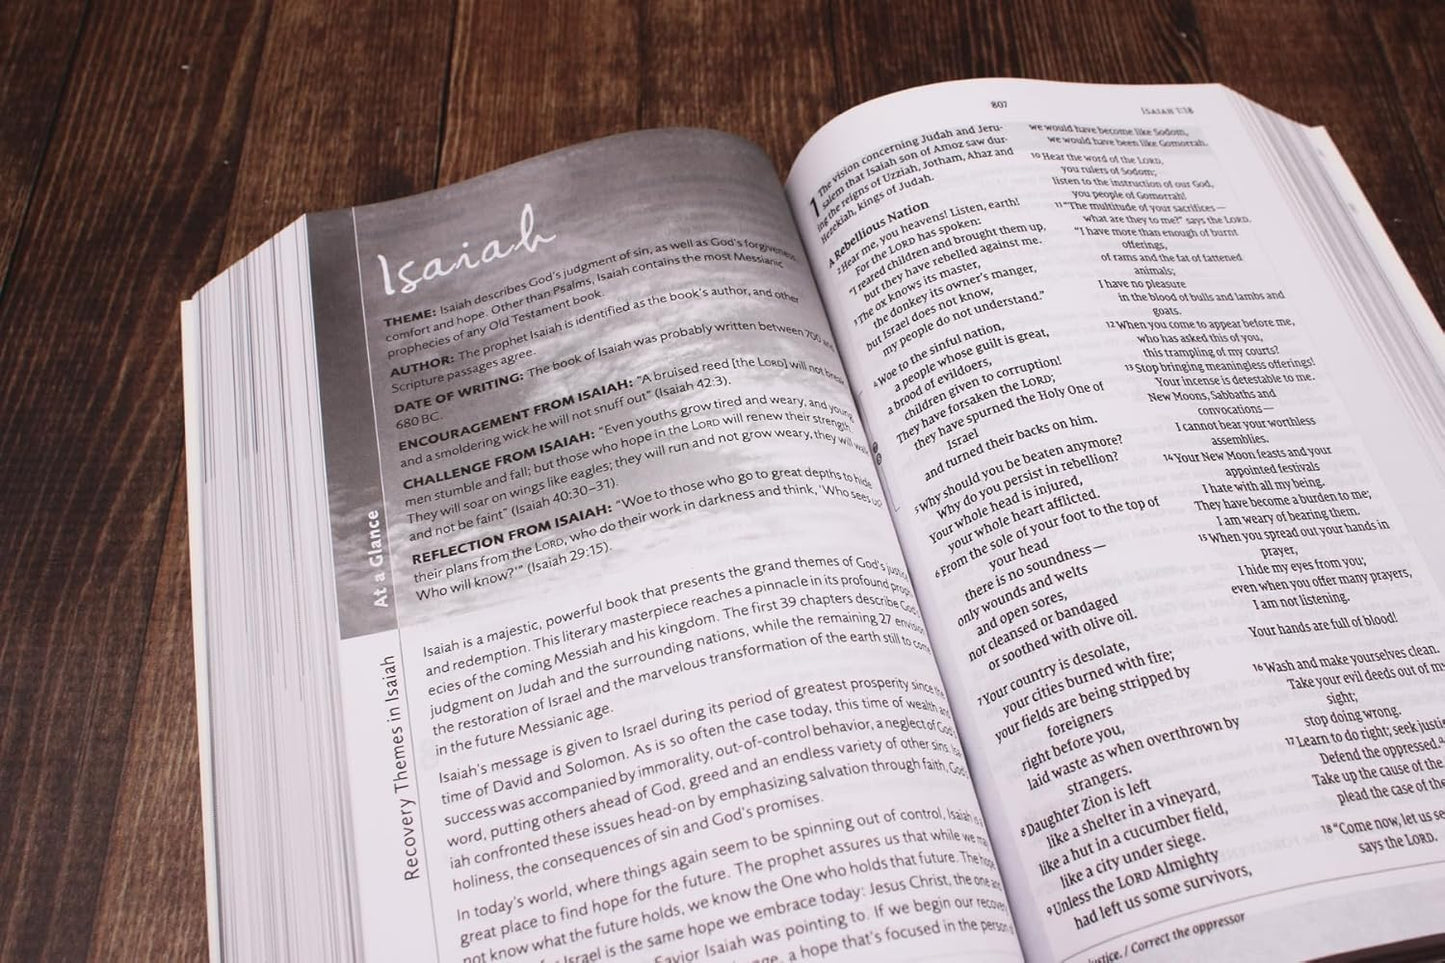 Isaiah
THEME: Isaiah describes God's judgment of sin, as well as God's forgiveness,
comfort and hope. Other than Psalms, Isaiah contains the most Messianic
prophecies of any Old Testament book.
AUTHOR: The prophet Isaiah is identified as the book's author, and other
Scripture passages agree.
DATE OF WRITING: The book of Isaiah was probably written between 700 and
680 BC.
ENCOURAGEMENT FROM ISAIAH: "A bruised reed [the LORD] will not break,
and a smoldering wick he will not snuff out" (Isaiah 42:3).
CHALLENGE FROM ISAIAH: "Even youths grow tired and weary, and young
men stumble and fall; but those who hope in the LORD will renew their strength.
They will soar on wings like eagles; they will run and not grow weary, they will walk
and not be faint" (Isaiah 40:30–31).
REFLECTION FROM ISAIAH: "Woe to those who go to great depths to hide
their plans from the LORD, who do their work in darkness and think, 'Who sees us?
Who will know?'" (Isaiah 29:15).
At a Glance
Isaiah is a majestic, powerful book that presents the grand themes of God's justice
and redemption. This literary masterpiece reaches a pinnacle in its profound proph-
ecies of the coming Messiah and his kingdom. The first 39 chapters describe God's
judgment on Judah and the surrounding nations, while the remaining 27 envision
the restoration of Israel and the marvelous transformation of the earth still to come
in the future Messianic age.
Isaiah's message is given to Israel during its period of greatest prosperity since the
time of David and Solomon. As is so often the case today, this time of wealth and
success was accompanied by immorality, out-of-control behavior, a neglect of God's
word, putting others ahead of God, greed and an endless variety of other sins. Isa-
iah confronted these issues head-on by emphasizing salvation through faith, God's
holiness, the consequences of sin and God's promises.
In today's world, where things again seem to be spinning out of control, Isaiah is a
great place to find hope for the future. The prophet assures us that while we may
not know what the future holds, we know the One who holds that future. The hope
Israel is the same hope we embrace today: Jesus Christ, the one and
Savior Isaiah was pointing to. If we begin our recovery
a hope that's focused in the person of
Recovery Themes in Isaiah
807
ISAIAH 1:18
1 The vision concerning Judah and Jeru-
salem that Isaiah son of Amoz saw dur-
ing the reigns of Uzziah, Jotham, Ahaz and
Hezekiah, kings of Judah.
A Rebellious Nation
2 Hear me, you heavens! Listen, earth!
For the LORD has spoken:
"I reared children and brought them up,
but they have rebelled against me.
3 The ox knows its master,
the donkey its owner's manger,
but Israel does not know,
my people do not understand."
4 Woe to the sinful nation,
a people whose guilt is great,
a brood of evildoers,
children given to corruption!
They have forsaken the LORD;
they have spurned the Holy One of
Israel
and turned their backs on him.
5 Why should you be beaten anymore?
Why do you persist in rebellion?
Your whole head is injured,
your whole heart afflicted.
6 From the sole of your foot to the top of
your head
there is no soundness—
only wounds and welts
and open sores,
not cleansed or bandaged
or soothed with olive oil.
7 Your country is desolate,
your cities burned with fire;
your fields are being stripped by
foreigners
right before you,
laid waste as when overthrown by
strangers.
8 Daughter Zion is left
like a shelter in a vineyard,
like a hut in a cucumber field,
like a city under siege.
9 Unless the LORD Almighty
had left us some survivors,
we would have become like Sodom,
we would have been like Gomorrah.
10 Hear the word of the LORD,
you rulers of Sodom;
listen to the instruction of our God,
you people of Gomorrah!
11 "The multitude of your sacrifices—
what are they to me?" says the LORD.
"I have more than enough of burnt
offerings,
of rams and the fat of fattened
animals;
I have no pleasure
in the blood of bulls and lambs and
goats.
12 When you come to appear before me,
who has asked this of you,
this trampling of my courts?
13 Stop bringing meaningless offerings!
Your incense is detestable to me.
New Moons, Sabbaths and
convocations—
I cannot bear your worthless
assemblies.
14 Your New Moon feasts and your
appointed festivals
I hate with all my being.
They have become a burden to me;
I am weary of bearing them.
15 When you spread out your hands in
prayer,
I hide my eyes from you;
even when you offer many prayers,
I am not listening.
Your hands are full of blood!
16 Wash and make yourselves clean.
Take your evil deeds out of my
sight;
stop doing wrong.
17 Learn to do right; seek justice.
Defend the oppressed.
Take up the cause of the
plead the case of the
18 "Come now, let us se
says the LORD.
justice. / Correct the oppressor